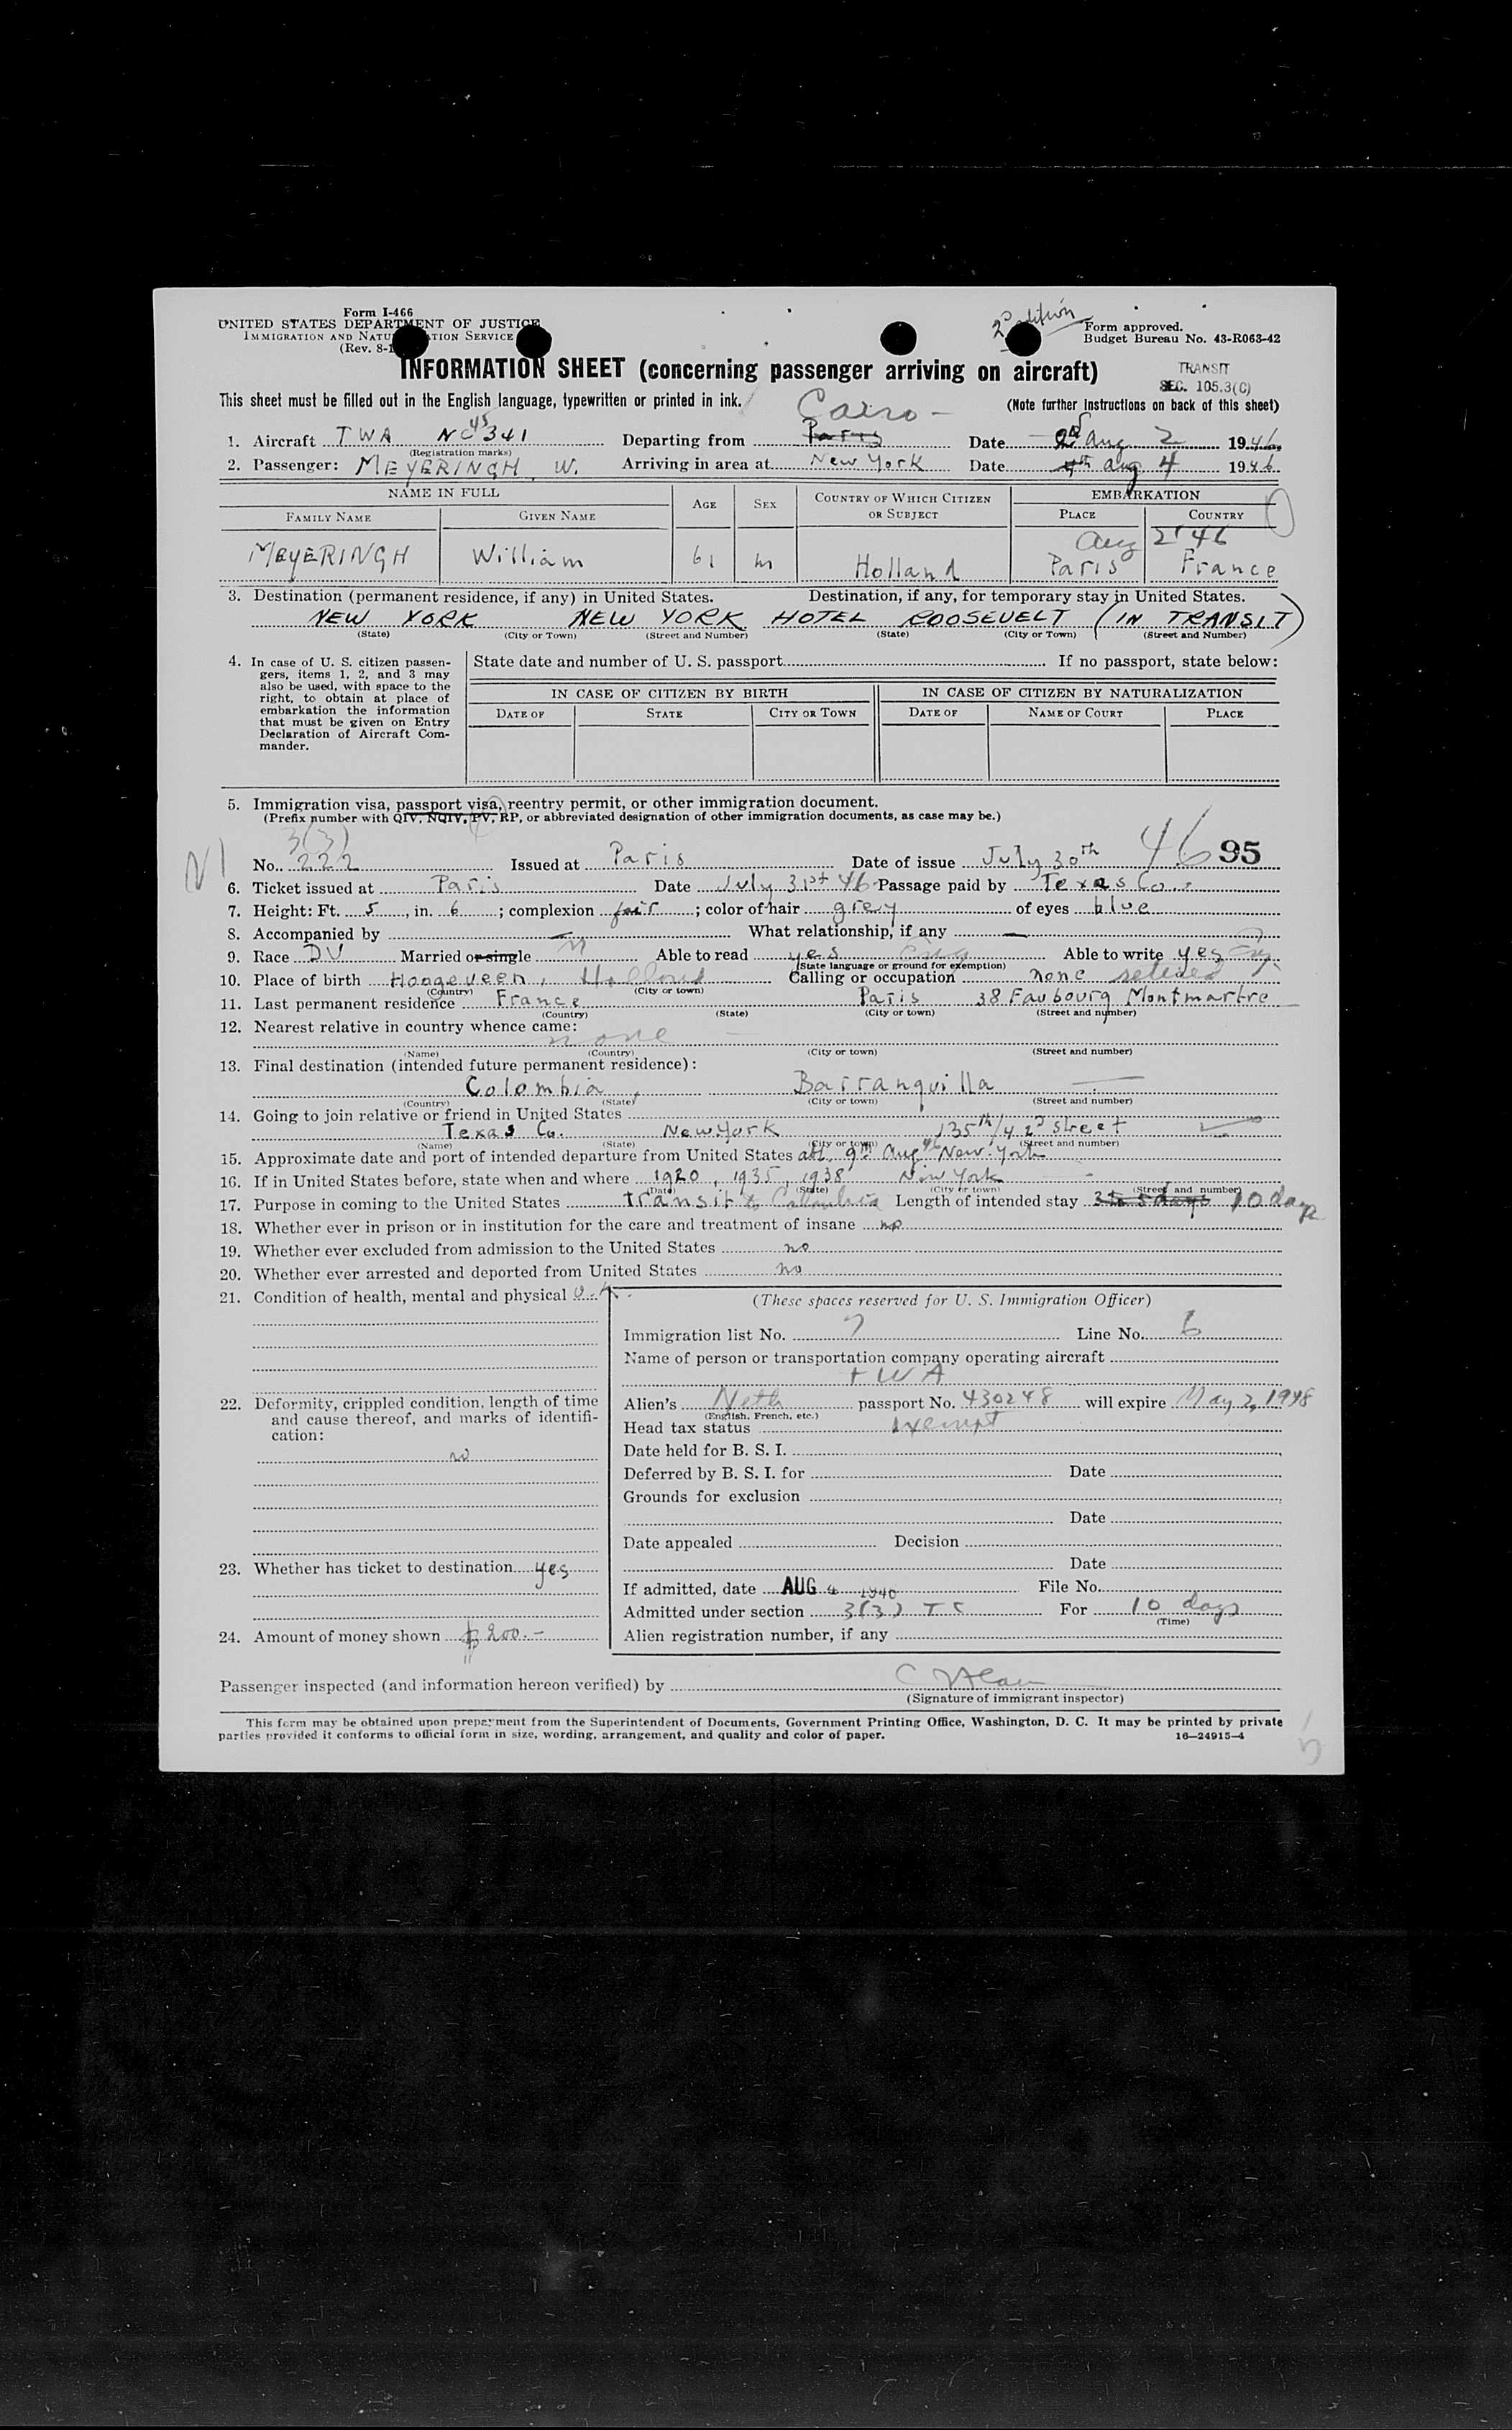 Form I-466
UNITED STATES DEPARTMENT OF JUSTICE
IMMIGRATION AND NATU TION SERVICE
(Rev. 8-1
2d edition
Form approved.
Budget Bureau No. 43-R063-42
INFORMATION SHEET (concerning passenger arriving on aircraft)
TRANSIT
SEC. 105.3(C)
This sheet must be filled out in the English language, typewritten or printed in ink.
(Note further instructions on back of this sheet)
Cairo -
1. Aircraft TWA NC 45341 Departing from Paris Date 2d Aug 2 1946
(Registration marks)
2. Passenger: MEYERINGH W. Arriving in area at New York Date 4th Aug 4 1946
NAME IN FULL AGE SEX COUNTRY OF WHICH CITIZEN OR SUBJECT EMBARKATION
FAMILY NAME GIVEN NAME PLACE COUNTRY
Aug 2 '46
MEYERINGH William 61 m Holland Paris France
3. Destination (permanent residence, if any) in United States. Destination, if any, for temporary stay in United States.
NEW YORK NEW YORK HOTEL ROOSEVELT (IN TRANSIT)
(State) (City or Town) (Street and Number) (State) (City or Town) (Street and Number)
4. In case of U. S. citizen passen-
gers, items 1, 2, and 3 may
also be used, with space to the
right, to obtain at place of
embarkation the information
that must be given on Entry
Declaration of Aircraft Com-
mander.
State date and number of U. S. passport If no passport, state below:
IN CASE OF CITIZEN BY BIRTH IN CASE OF CITIZEN BY NATURALIZATION
DATE OF STATE CITY OR TOWN DATE OF NAME OF COURT PLACE
5. Immigration visa, passport visa, reentry permit, or other immigration document.
(Prefix number with QIV, NQIV, PV, RP, or abbreviated designation of other immigration documents, as case may be.)
3(3)
No. 222 Issued at Paris Date of issue July 30th 46 95
6. Ticket issued at Paris Date July 31st 46 Passage paid by Texas Co.
7. Height: Ft. 5, in. 6; complexion fair; color of hair grey of eyes blue
8. Accompanied by — What relationship, if any —
9. Race DU Married or single M Able to read yes Eng Able to write yes Eng
(State language or ground for exemption)
10. Place of birth Hoogeveen, Holland Calling or occupation none retired
(Country) (City or town)
11. Last permanent residence France Paris 38 Faubourg Montmartre
(Country) (State) (City or town) (Street and number)
12. Nearest relative in country whence came:
none
(Name) (Country) (City or town) (Street and number)
13. Final destination (intended future permanent residence):
Colombia Barranquilla
(Country) (State) (City or town) (Street and number)
14. Going to join relative or friend in United States
Texas Co. New York 135th/42d street
(Name) (State) (City or town) (Street and number)
15. Approximate date and port of intended departure from United States abt. 9th Aug 46 New York
16. If in United States before, state when and where 1920, 1935, 1938 New York
(Date) (State) (City or town) (Street and number)
17. Purpose in coming to the United States transit to Colombia Length of intended stay 3 to 5 days 10 days
18. Whether ever in prison or in institution for the care and treatment of insane no
19. Whether ever excluded from admission to the United States no
20. Whether ever arrested and deported from United States no
21. Condition of health, mental and physical O.K.
(These spaces reserved for U. S. Immigration Officer)
Immigration list No. 7 Line No. 6
Name of person or transportation company operating aircraft
TWA
22. Deformity, crippled condition, length of time
and cause thereof, and marks of identifi-
cation:
no
Alien's Neth passport No. 430248 will expire May 2, 1948
(English, French, etc.)
Head tax status exempt
Date held for B. S. I.
Deferred by B. S. I. for Date
Grounds for exclusion
Date
Date appealed Decision
Date
23. Whether has ticket to destination yes
If admitted, date AUG 4 1946 File No.
Admitted under section 3(3) TC For 10 days
(Time)
24. Amount of money shown $200.-
Alien registration number, if any
Passenger inspected (and information hereon verified) by
(Signature of immigrant inspector)
This form may be obtained upon prepayment from the Superintendent of Documents, Government Printing Office, Washington, D. C. It may be printed by private
parties provided it conforms to official form in size, wording, arrangement, and quality and color of paper.
16—24915-4